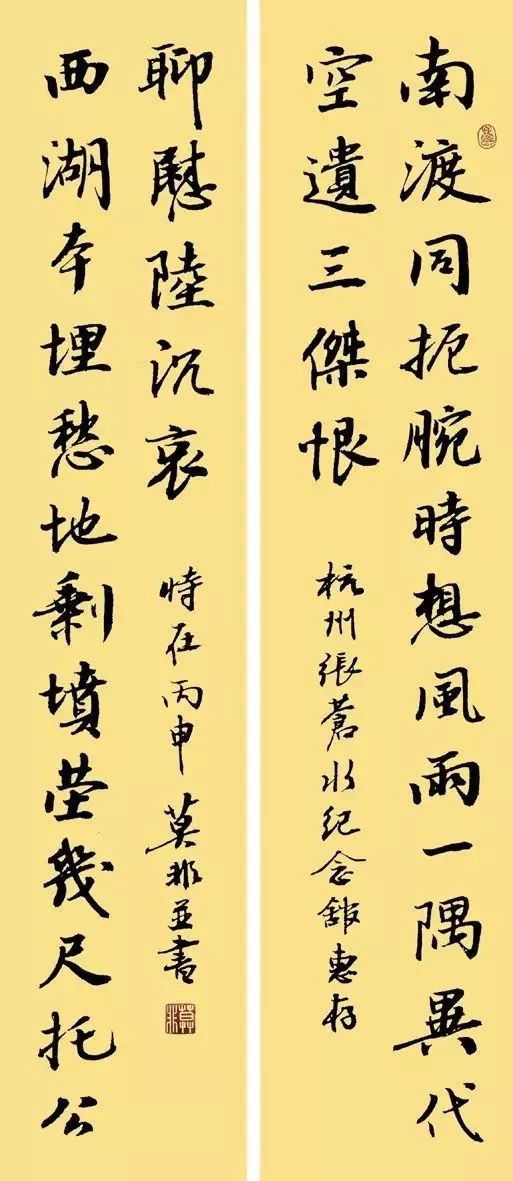 南渡同扼腕時想風雨一隅異代
空遺三傑恨
杭州張蒼水紀念館惠存
西湖本埋愁地剩墳塋幾尺托公
聊慰陸沉哀
時在丙申莫非並書
莫非